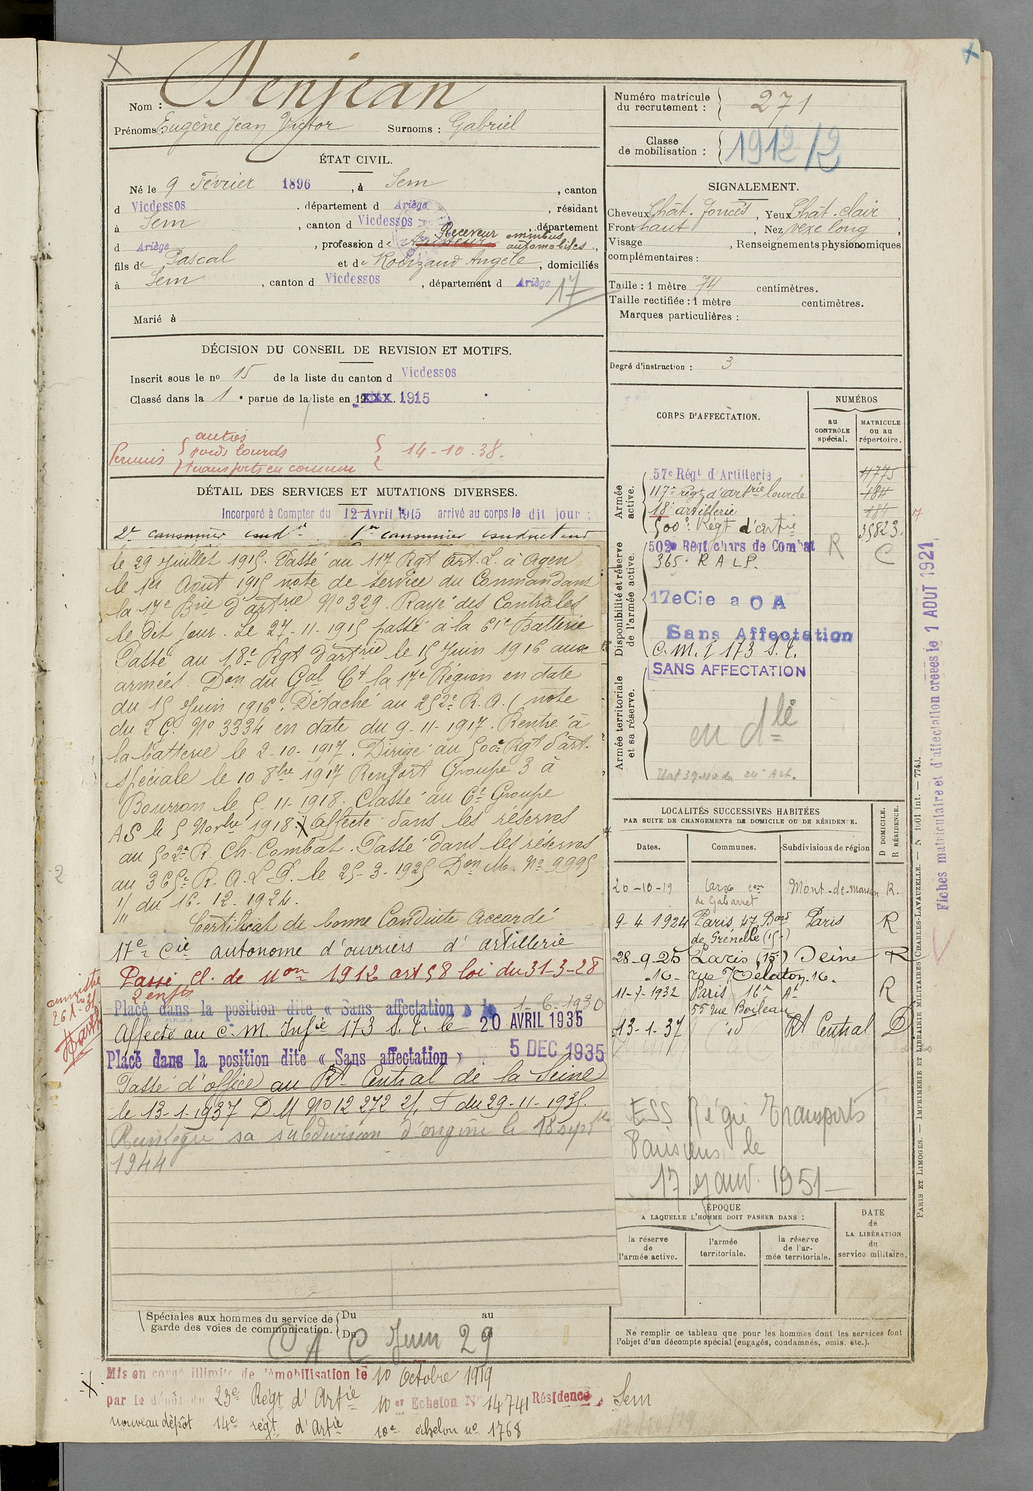 Nom : Denjean
Prénoms Eugène Jean Victor Surnoms : Gabriel
ÉTAT CIVIL.
Né le 9 Février 1896, à Sem, canton
d Vicdessos, département d Ariège, résidant
à Sem, canton d Vicdessos, département
d Ariège, profession d Receveur omnibus automobiles,
fils de Pascal et de Angèle, domiciliés
à Sem, canton d Vicdessos, département d Ariège
17
Marié à
DÉCISION DU CONSEIL DE REVISION ET MOTIFS.
Inscrit sous le no 15 de la liste du canton d Vicdessos
Classé dans la 1e partie de la liste en 19xxx. 1915
Permis { autres
poids lourds
transports en commun } 14-10-38.
DÉTAIL DES SERVICES ET MUTATIONS DIVERSES.
Incorporé à Compter du 12 Avril 1915 arrivé au corps le dit jour ;
2e canonnier cond.r 1er canonnier conducteur
le 29 Juillet 1915. Passé au 117 Rgt art. L. à Agen
le 1er Août 1915 note de service du Commandant
la 17e Bde d'artrie No 329. Rayé des Contrôles
le dit jour. Le 27-11-1915 passé à la 61e Batterie
Passé au 18e Rgt d'artrie le 15 Juin 1916 aux
armées. Don du Gal Ct la 17e Région en date
du 15 Juin 1916. Détaché au 252e R.A. (note
du 2 G. No 3334 en date du 9-11-1917. Rentré à
la batterie le 2-10-1917. Dirigé au 500e Rgt d'art.
spéciale le 10 8bre 1917 Renfort Groupe 3 à
Bourron le 5.11-1918. Classé au Ct Groupe
AS le 5 Novbre 1918. X affecté dans les réserves
au 502e R. Ch. Combat. Passé dans les réserves
au 365e R.A.L.P. le 25-3-1925 Don Me. No 9995
1/11 du 16.12.1924.
Certificat de bonne Conduite Accordé
17e Cie autonome d'ouvriers d'artillerie
Passé cl. de mon 1912 art 58 loi du 31-3-28
2 enfts
Placé dans la position dite « Sans affectation » le 1-6-1930
Affecté au C.M. Infie 173 S.I. le 20 AVRIL 1935
Placé dans la position dite « Sans affectation » 5 DEC 1935
Passé d'office au Rt Central de la Seine
le 13-1-1937 DM No 12272 2/ du 29-11-1935.
Réintégré sa subdivision d'origine le 18 sept
1944
Spéciales aux hommes du service de garde des voies de communication. { Du au
Du
C A C Juin 29
Mis en congé illimité de démobilisation le 10 Octobre 1919
par le dépôt du 23e Régt d'Artie 10er Echelon No 14741 Résidence, Sem
nouveau dépôt 14e régt d'Artie 10e échelon no 1768
Numéro matricule du recrutement : 271
Classe de mobilisation : 1912/2
SIGNALEMENT.
Cheveux Chât. foncés, Yeux Chât. clair,
Front haut, Nez vexe long,
Visage, Renseignements physionomiques
complémentaires :
Taille : 1 mètre 74 centimètres.
Taille rectifiée : 1 mètre centimètres.
Marques particulières :
Degré d'instruction : 3
CORPS D'AFFECTATION.
NUMÉROS
au CONTRÔLE spécial.
MATRICULE ou au répertoire.
Armée active.
57e Régt d'Artillerie 4775
117e Régt d'artrie lourde 184
18e artillerie 184
500e Régt d'artie 35823
Disponibilité et réserve de l'armée active.
502e Régt chars de Combat R C
365e R A L P.
17eCie a O A
Sans Affectation
C.M.I 173 S.I.
SANS AFFECTATION
Armée territoriale et sa réserve.
en dlé
LOCALITÉS SUCCESSIVES HABITÉES
PAR SUITE DE CHANGEMENTS DE DOMICILE OU DE RÉSIDENCE.
Dates. Communes. Subdivisions de région D DOMICILE. R RÉSIDENCE.
20-10-19 de Gabarret Mont-de-marsan R.
9-4 1924 Paris, 47 Bard de Grenelle (15e) Paris R
28-9-25 Paris (15e) Seine R
16 rue Delaton 16.
11-7-1932 Paris 16e At R
55 rue Boileau
13-1-37 (id) Rt Central D
ESS Régie Transports
Parisiens le
17 janv. 1951
ÉPOQUE
A LAQUELLE L'HOMME DOIT PASSER DANS :
la réserve de l'armée active.
l'armée territoriale.
la réserve de l'armée territoriale.
DATE de LA LIBÉRATION du service militaire.
Ne remplir ce tableau que pour les hommes dont les services font
l'objet d'un décompte spécial (engagés, condamnés, omis, etc.).
PARIS ET LIMOGES. — IMPRIMERIE ET LIBRAIRIE MILITAIRES CHARLES-LAVAUZELLE. — N° 1601 int. — 7743.
Fiches matriculaire et d'affectation créées le 1 AOUT 1921